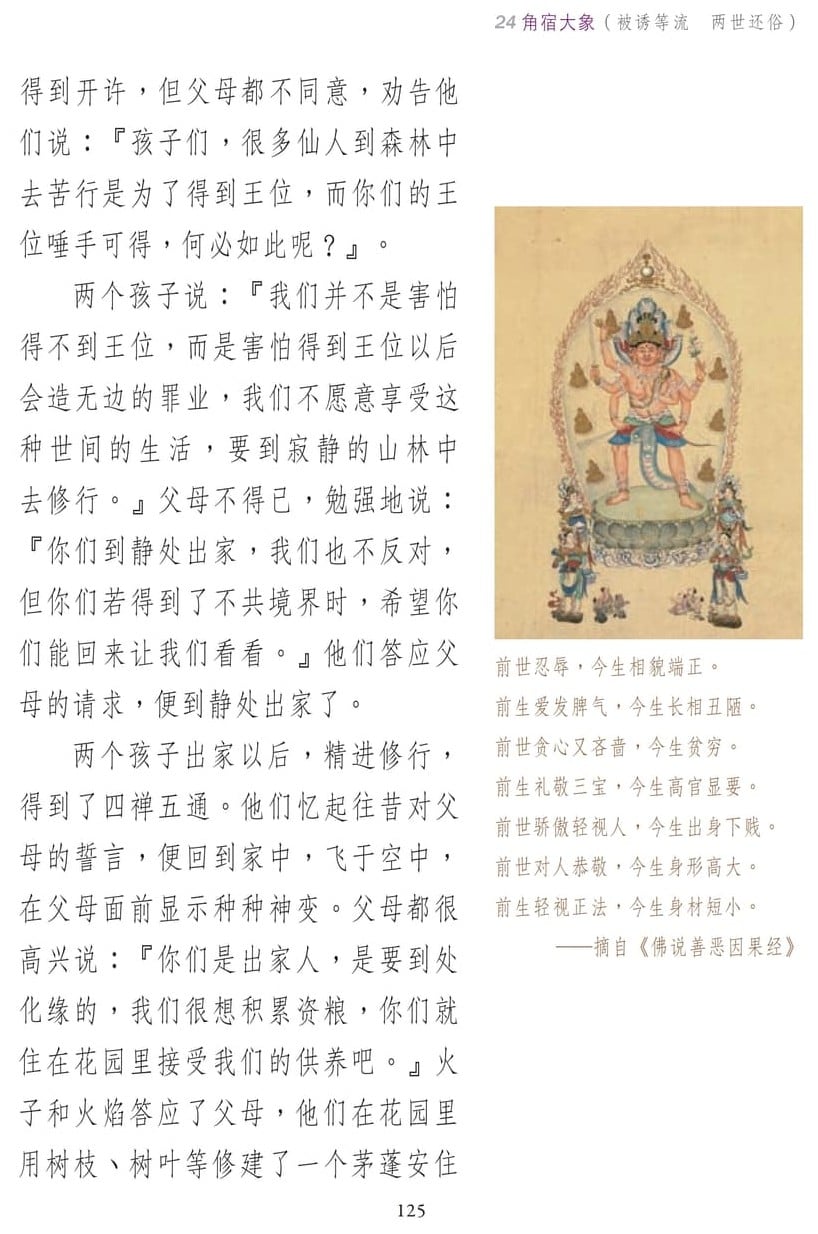 24 角宿大象（被诱等流　两世还俗）
得到开许，但父母都不同意，劝告他
们说：『孩子们，很多仙人到森林中
去苦行是为了得到王位，而你们的王
位唾手可得，何必如此呢？』。
　　两个孩子说：『我们并不是害怕
得不到王位，而是害怕得到王位以后
会造无边的罪业，我们不愿意享受这
种世间的生活，要到寂静的山林中
去修行。』父母不得已，勉强地说：
『你们到静处出家，我们也不反对，
但你们若得到了不共境界时，希望你
们能回来让我们看看。』他们答应父
母的请求，便到静处出家了。
　　两个孩子出家以后，精进修行，
得到了四禅五通。他们忆起往昔对父
母的誓言，便回到家中，飞于空中，
在父母面前显示种种神变。父母都很
高兴说：『你们是出家人，是要到处
化缘的，我们很想积累资粮，你们就
住在花园里接受我们的供养吧。』火
子和火焰答应了父母，他们在花园里
用树枝、树叶等修建了一个茅蓬安住
前世忍辱，今生相貌端正。
前生爱发脾气，今生长相丑陋。
前世贪心又吝啬，今生贫穷。
前生礼敬三宝，今生高官显要。
前世骄傲轻视人，今生出身下贱。
前世对人恭敬，今生身形高大。
前生轻视正法，今生身材短小。
——摘自《佛说善恶因果经》
125